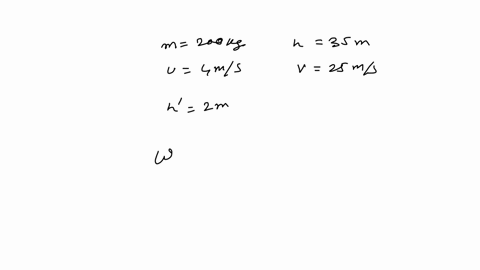 m = 200 kg h = 35 m
u = 4 m/s v = 25 m/s
h' = 2 m
W